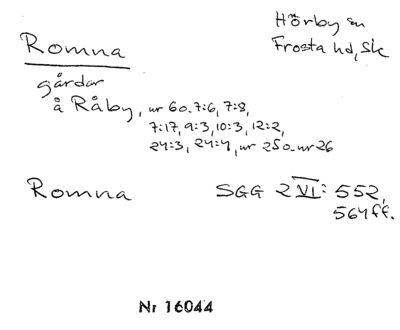 Romna
Hörby sn
Frosta hd, Sk
gårdar
å Råby, ur 60. 7:6, 7:8,
7:17, 9:3, 10:3, 12:2,
24:3, 24:4, ur 25 o. ur 26
Romna
SGG 2 VI: 552,
564 ff.
Nr 16044